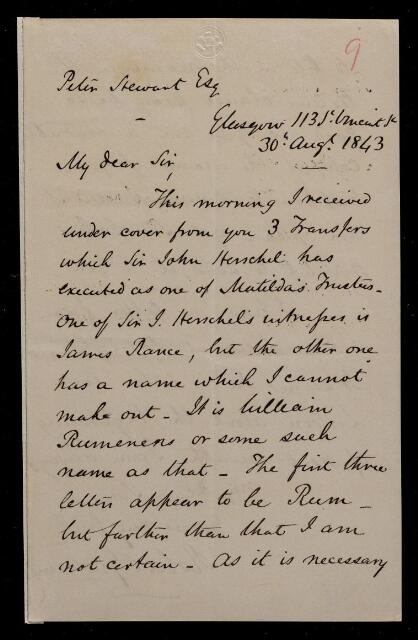 9
Peter Stewart Esq
Glasgow 113 St. Vincent St
30th Augt. 1843
My dear Sir,
This morning I received
under cover from you 3 Transfers
which Sir John Herschel has
executed as one of Matilda's Trustees -
One of Sir J. Herschel's witnesses is
James Rance, but the other one
has a name which I cannot
make out - It is William
Rumenens or some such
name as that - The first three
letters appear to be Rum -
but further than that I am
not certain - As it is necessary